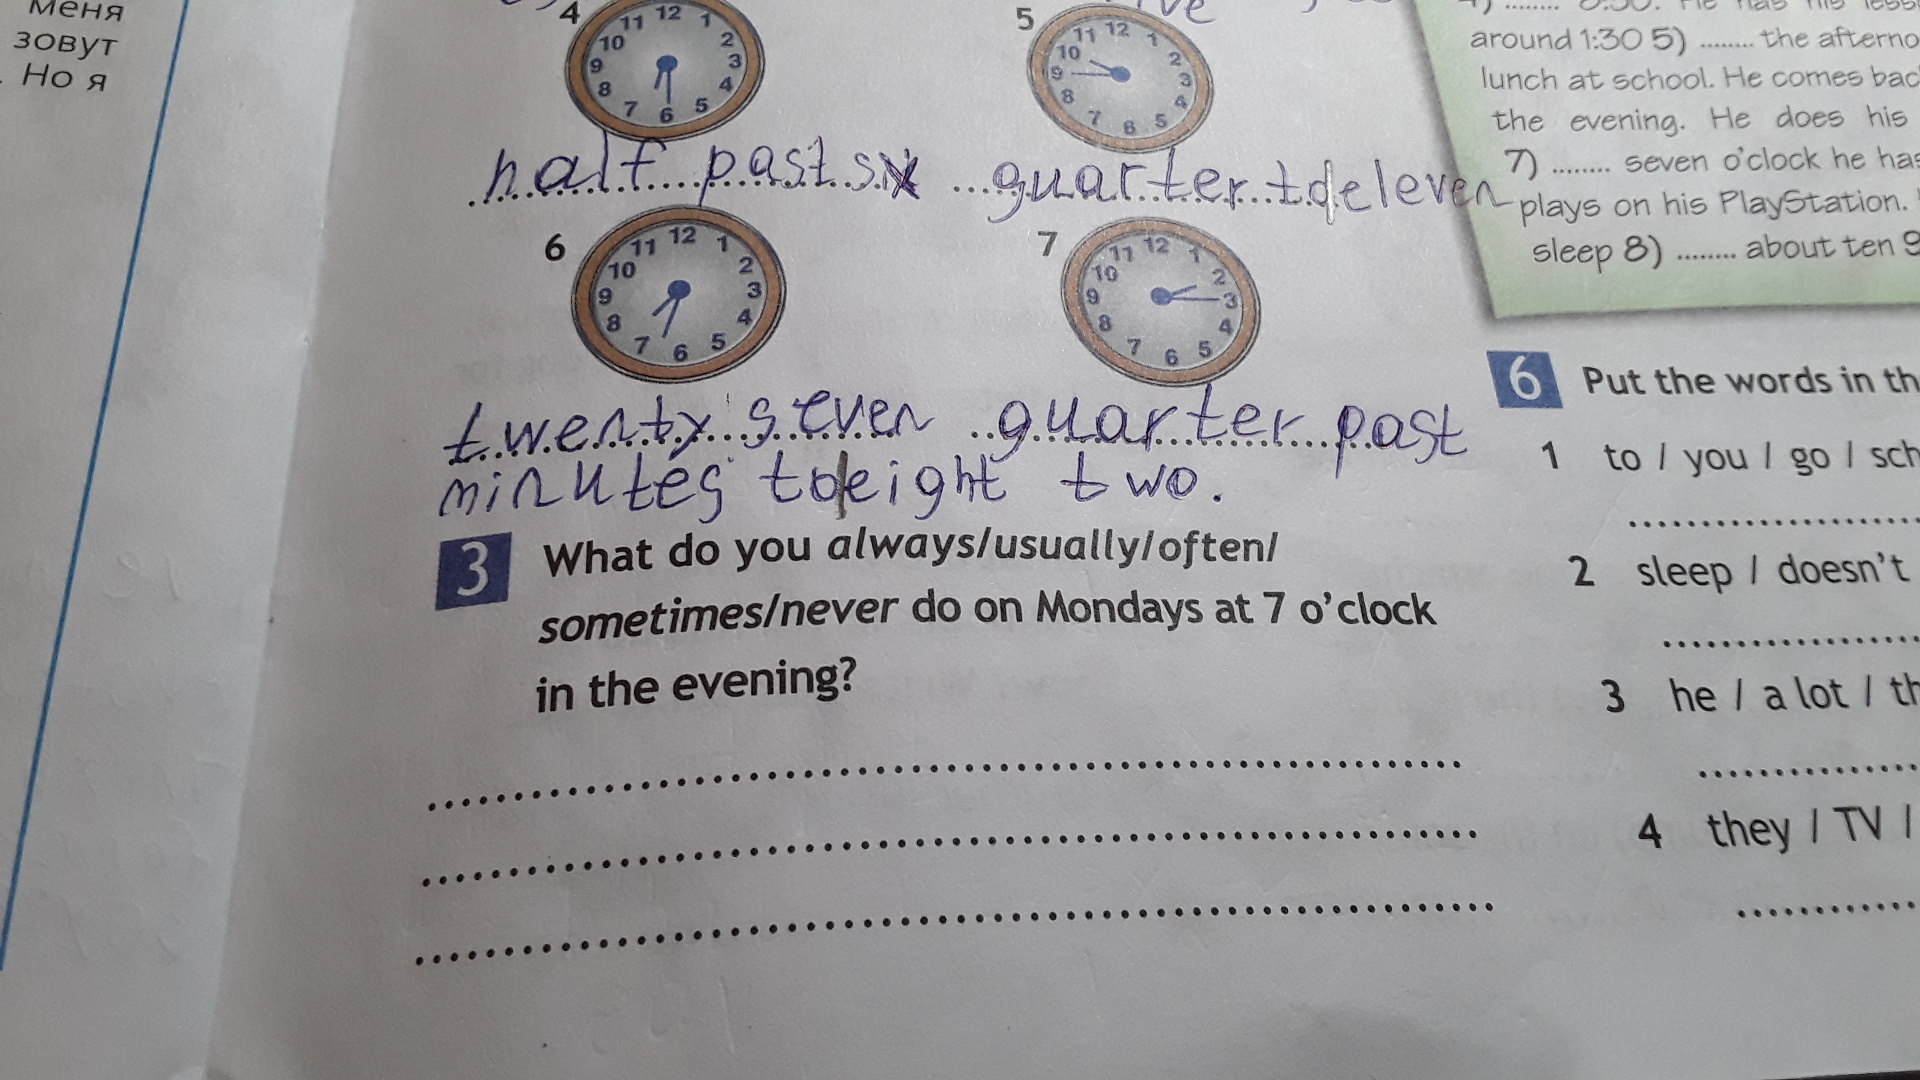 меня
зовут
Но я
4
5
half past six
quarter to eleven
6
7
twenty seven
minutes to eight
quarter past
two.
3 What do you always/usually/often/
sometimes/never do on Mondays at 7 o'clock
in the evening?
around 1:30 5) ........ the afterno
lunch at school. He comes bac
the evening. He does his
7) ........ seven o'clock he has
plays on his PlayStation.
sleep 8) ........ about ten 9
6 Put the words in th
1 to / you / go / sch
2 sleep / doesn't
3 he / a lot / th
4 they / TV /